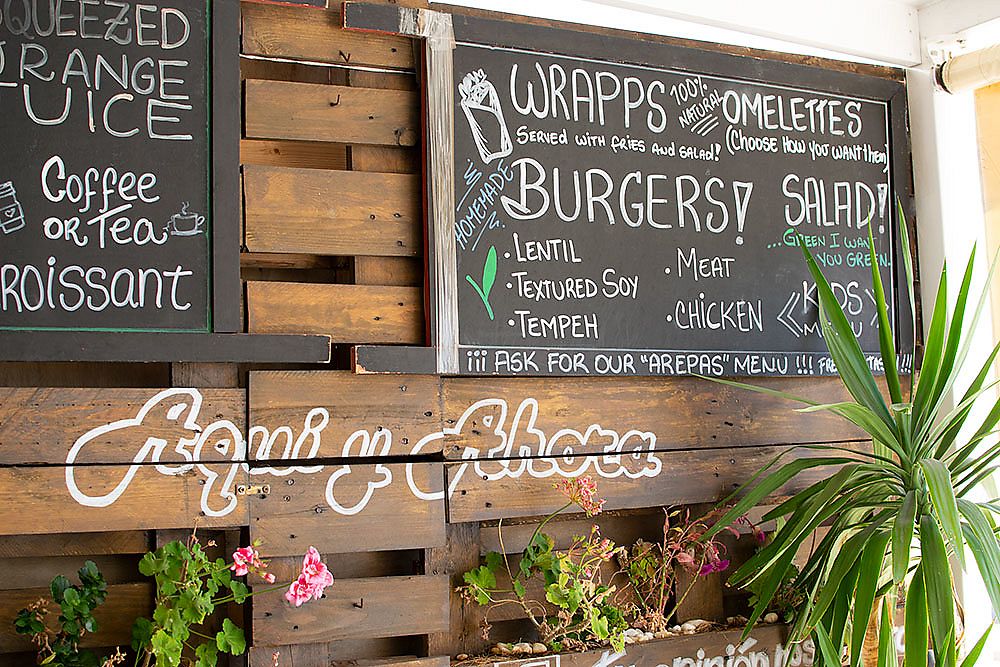 SQUEEZED
ORANGE
JUICE
Coffee
OR Tea
ROISSANT
WRAPPS
100% NATURAL
SERVED WITH FRIES AND SALAD!
OMELETTES
(CHOOSE HOW YOU WANT THEM)
HOMEMADE
BURGERS!
• LENTIL
• TEXTURED SOY
• TEMPEH
• MEAT
• CHICKEN
SALAD!
...GREEN I WAN
YOU GREEN.
KIDS
¡¡¡ ASK FOR OUR "AREPAS" MENU !!!
Aqui y Ahora
opinión